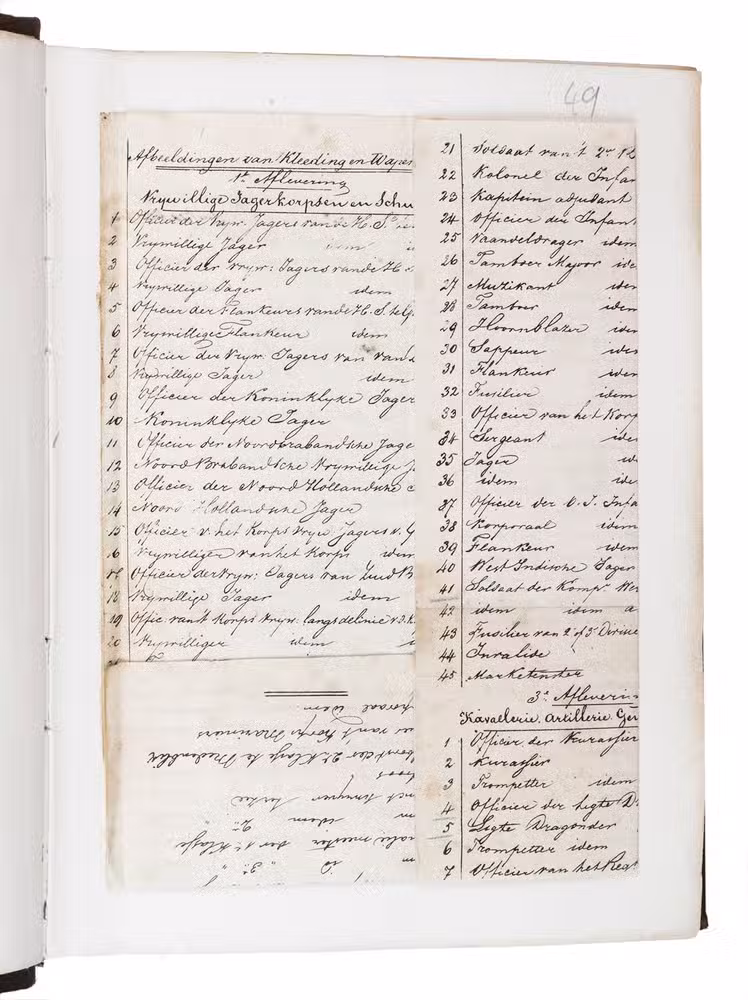 49
Afbeeldingen van Kleeding en Wapen
1e Aflevering
Vrywillige Jagerkorpsen en Schu
1 Officier der Vryw. Jagers van de H. S.
2 Vrywillige Jager idem
3 Officier der vryw: Jagers van de H
4 Vrywillige Jager idem
5 Officier der Flankeurs van de H.
6 Vrywillige Flankeur idem
7 Officier der Vryw. Jagers van
8 Vrywillige Jager idem
9 Officier der Koninklyke Jager
10 Koninklyke Jager
11 Officier der Noordbrabandsche Jage
12 Noord Brabandsche Vrywillige J
13 Officier der Noord Hollandsche
14 Noord Hollandsche Jager
15 Officier v. het Korps Vryw Jagers v. G
16 Vrywilliger van het Korps idem
17 Officier der vryw: Jagers van Zuid B
18 Vrywillige Jager idem
19 Offic. van't Korps vryw: langs de linie v.
20 Vrywilliger idem
21 Soldaat van 't 2e
22 Kolonel der Infan
23 Kapitein adjudant
24 Officier der Infant
25 Vaandeldrager idem
26 Tamboer Majoor ide
27 Muzikant iden
28 Tamboer iden
29 Hoornblazer iden
30 Sappeur iden
31 Flankeur iden
32 Fusilier iden
33 Officier van het Korp
34 Sergeant iden
35 Jager id
36 idem ide
37 Officier der O. I. Infa
38 Korporaal idem
39 Flankeur idem
40 West Indische Jager
41 Soldaat der Komp. Wes
42 idem idem
43 Fusilier van 2e of 3e Divisie
44 Invalide
45 Marketenster
3e Afleverin
Kavallerie. Artillerie. Gen
1 Officier der Kurassier
2 Kurassier
3 Trompetter idem
4 Officier der ligte D
5 Ligte Dragonder
6 Trompetter idem
7 Officier van het Reg
3e
idem 2e
der 1e Klasse
der 2e Klasse te Medemblik
van't Korps Mariniers
idem